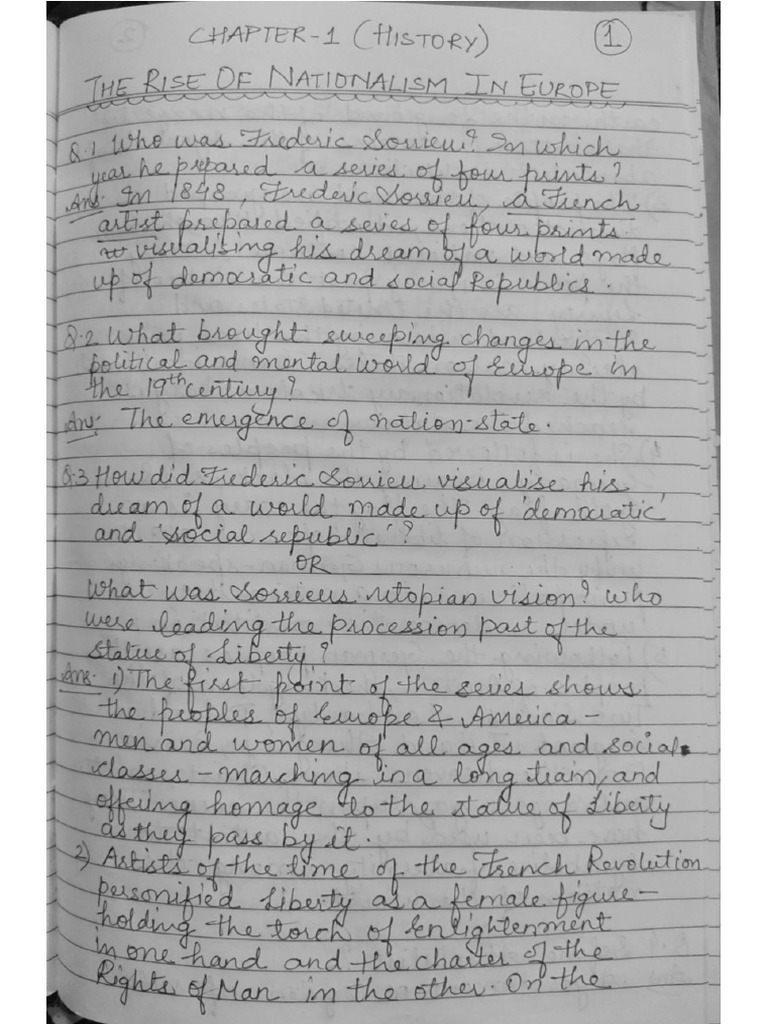 CHAPTER-1 (HISTORY)
1
THE RISE OF NATIONALISM IN EUROPE
Q.1 Who was Frederic Sorrieu? In which
year he prepared a series of four prints?
Ans. In 1848, Frederic Sorrieu, a French
artist prepared a series of four prints.
visualising his dream of a world made
up of democratic and social Republics.
Q.2 What brought sweeping changes in the
political and mental world of Europe in
the 19th century?
Ans: The emergence of nation-state.
Q.3 How did Frederic Sorrieu visualise his
dream of a world made up of 'democratic'
and 'social republic'?
OR
What was Sorrieus utopian vision? Who
were leading the procession past of the
statue of Liberty?
Ans. 1) The first point of the series shows
the peoples of Europe & America -
men and women of all ages and social
classes - marching in a long train, and
offering homage to the statue of Liberty
as they pass by it.
2) Artists of the time of the French Revolution
personified Liberty as a female figure -
holding the torch of Enlightenment
in one hand and the charter of the
Rights of Man in the other. On the